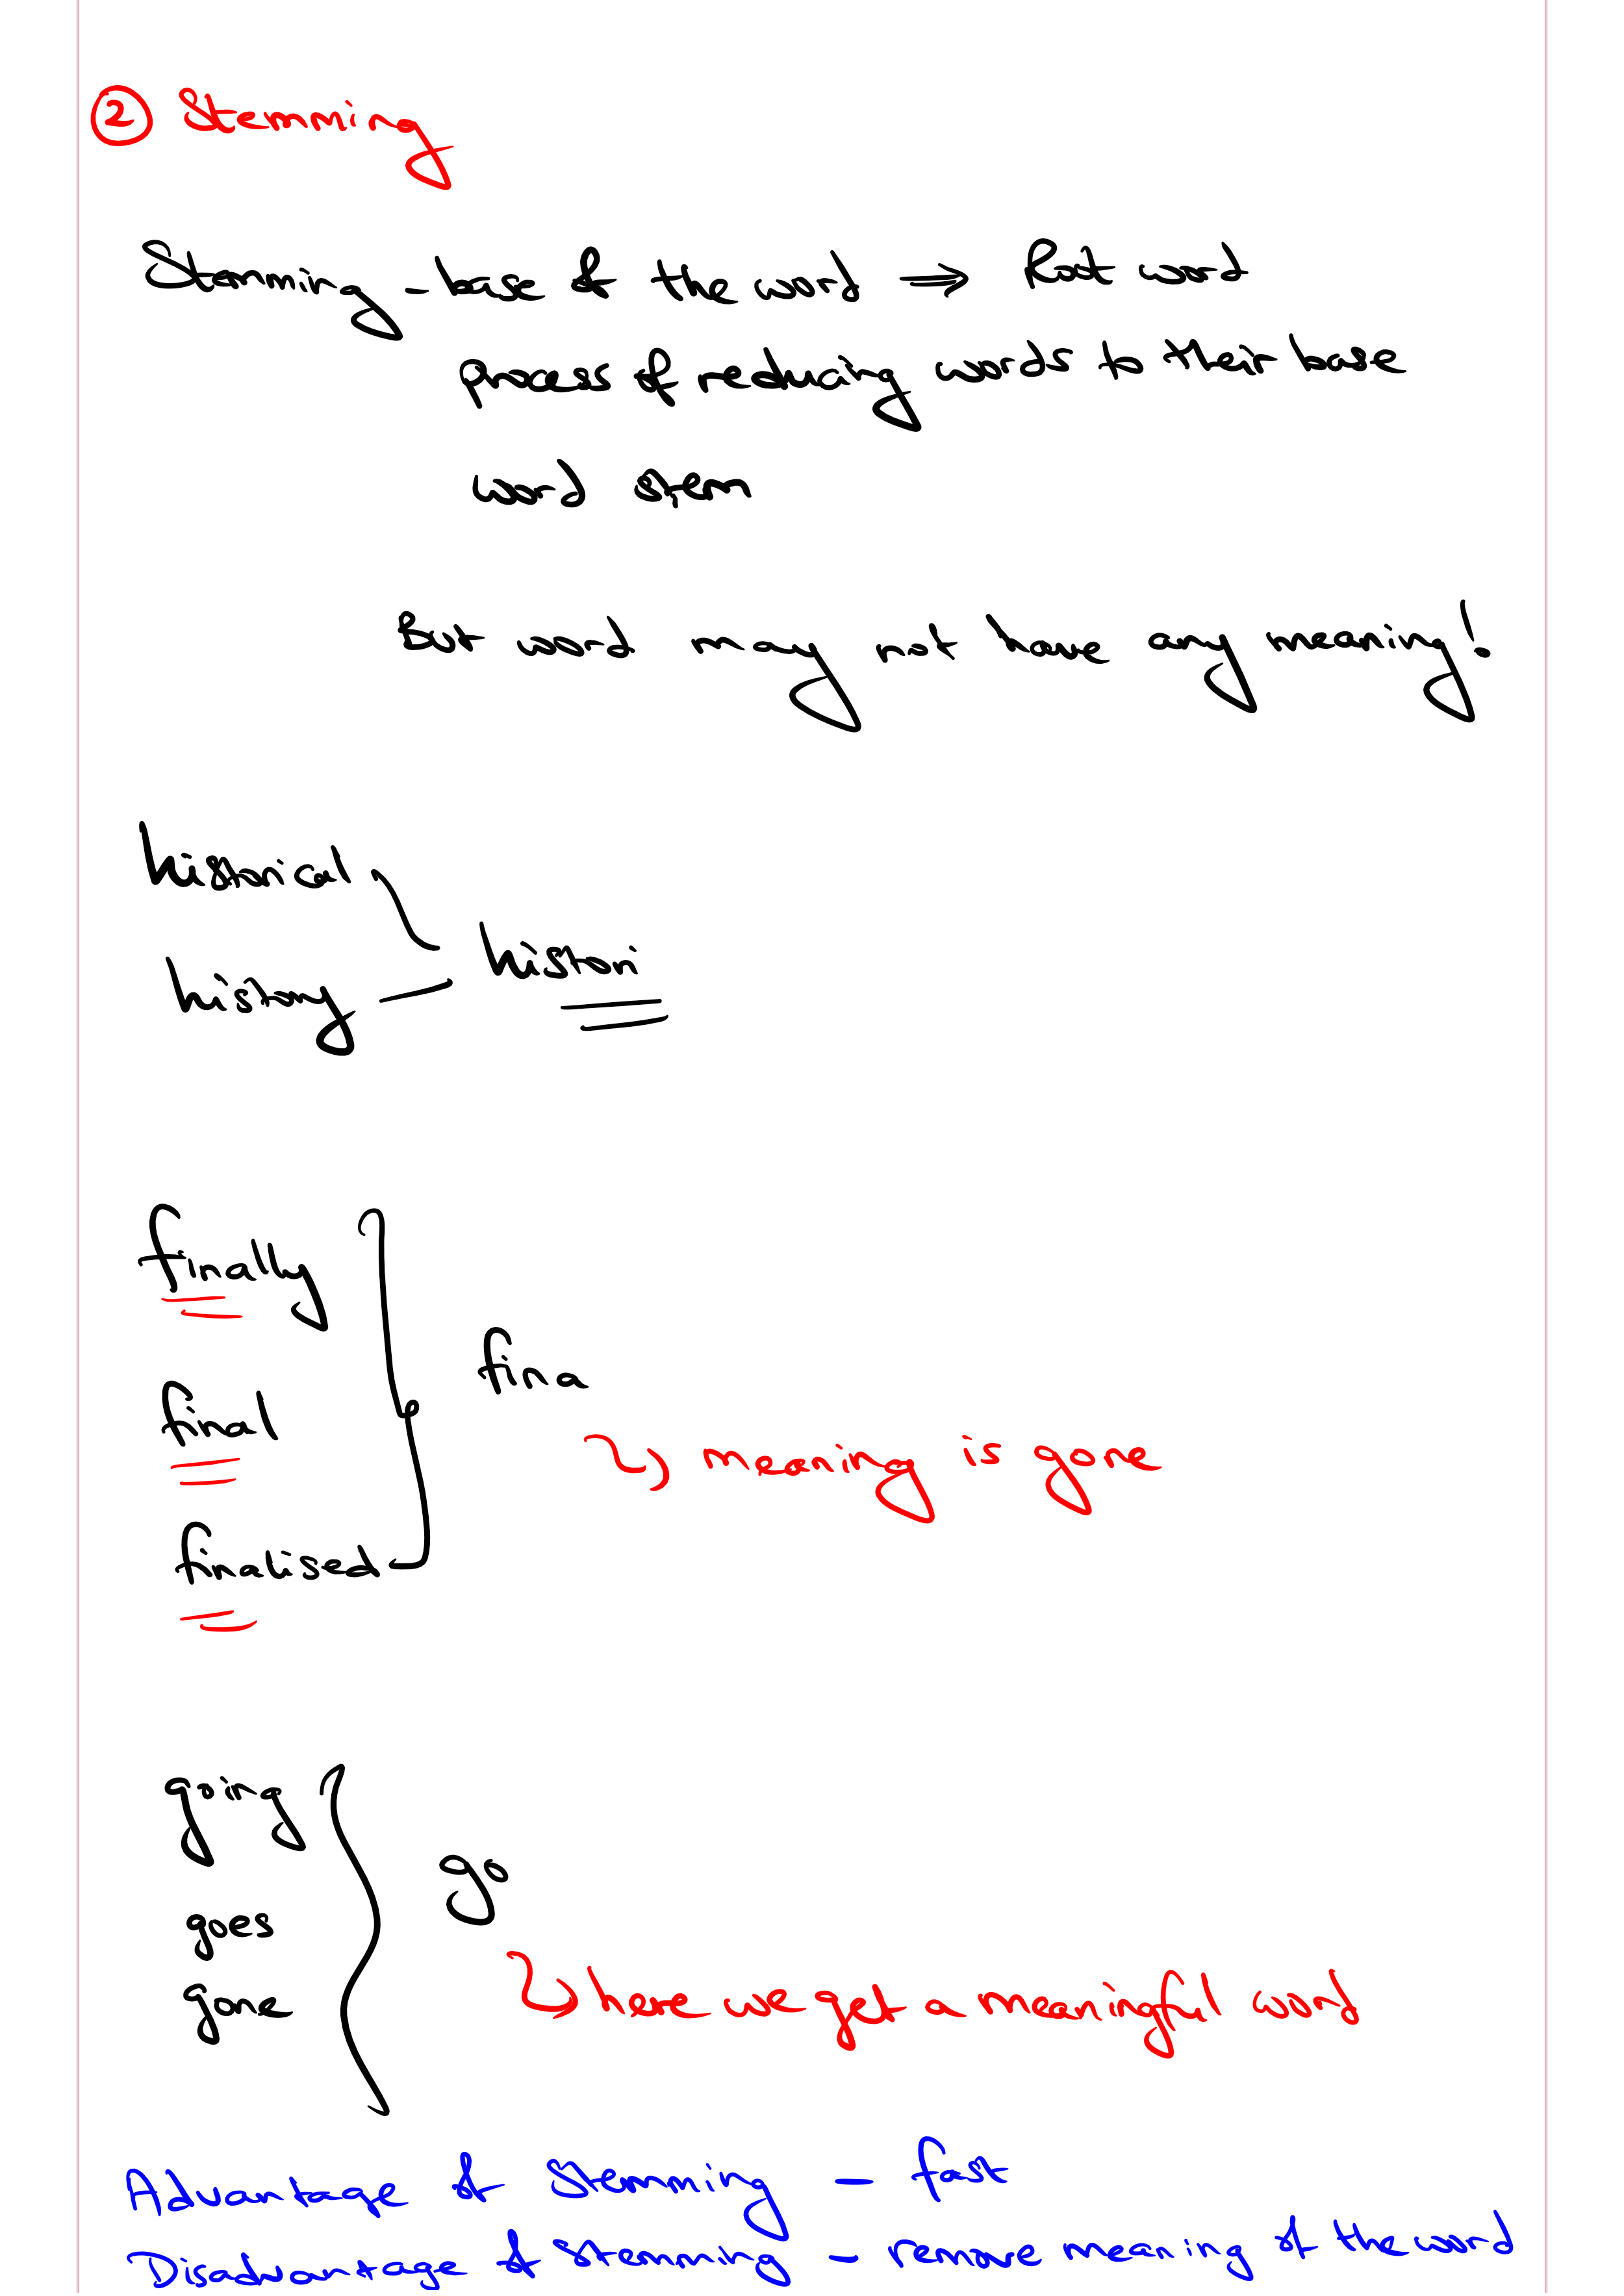 ② Stemming
Stemming - base of the word ⇒ Root word
process of reducing words to their base
word stem
But word may not have any meaning!
historical
histori
history
finally
fina
final
meaning is gone
finalised
going
go
goes
here we get a meaningful word
gone
Advantage of Stemming - fast
Disadvantage of Stemming - remove meaning of the word